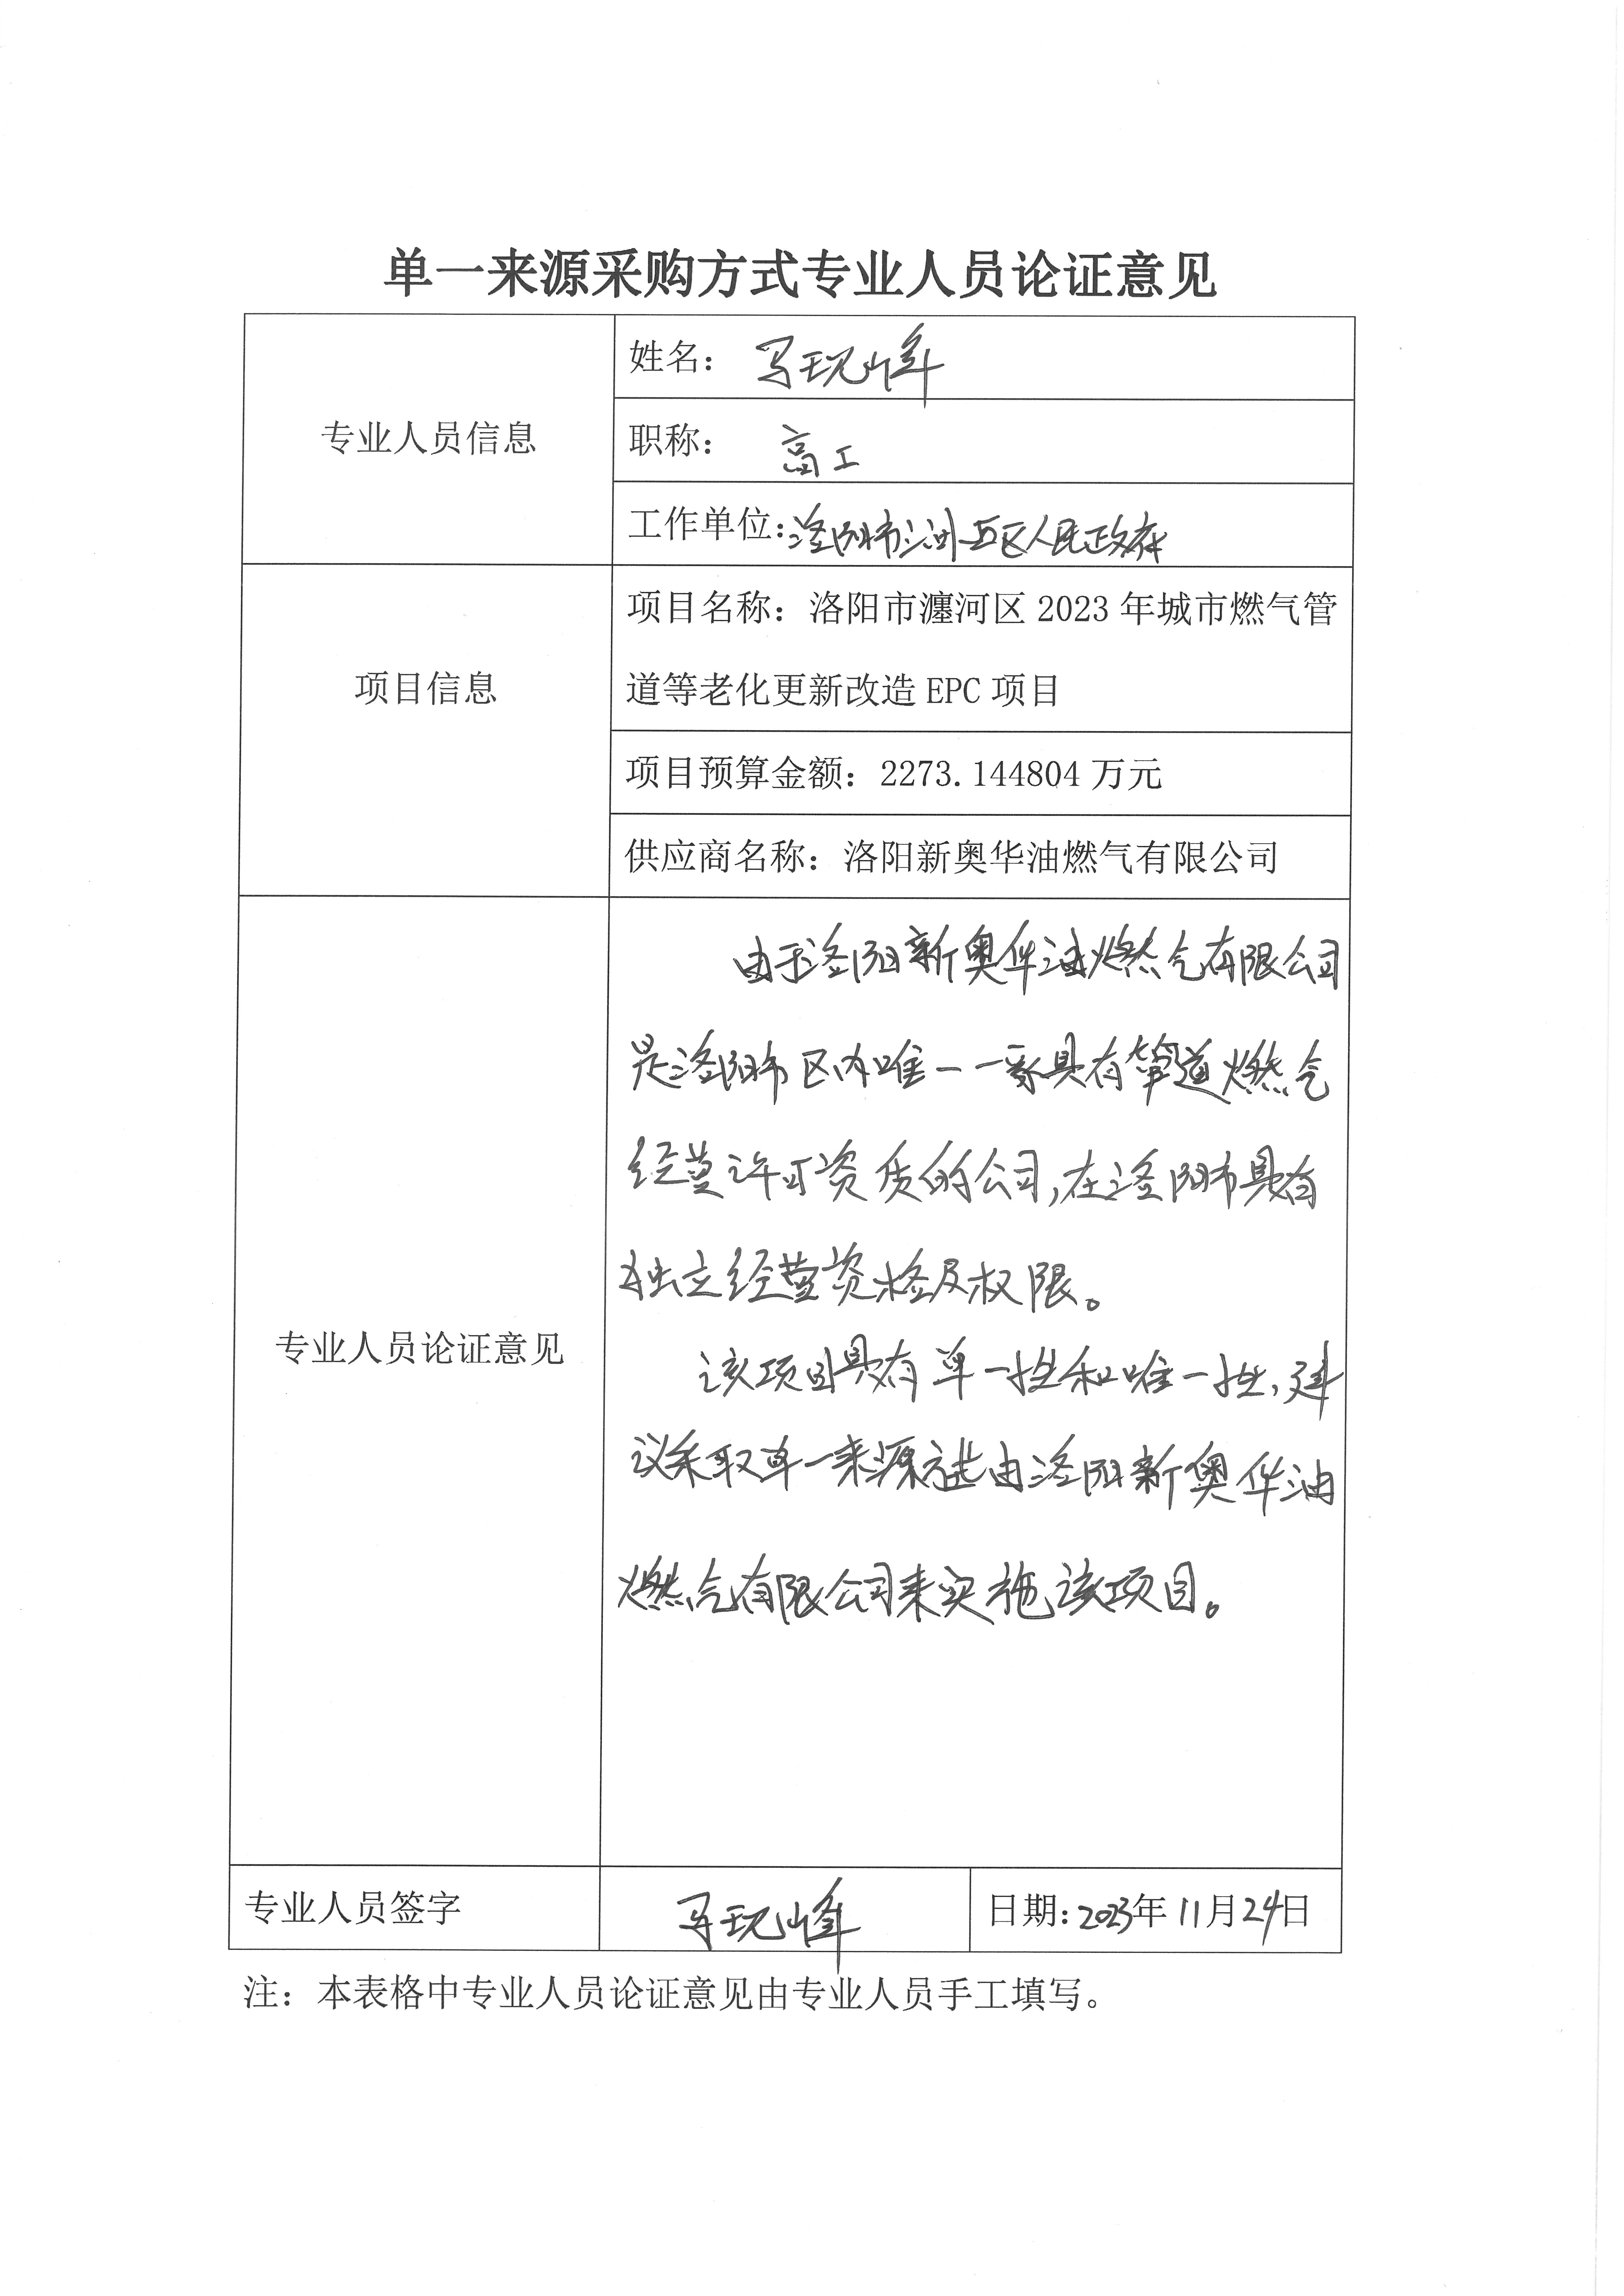 单一来源采购方式专业人员论证意见
专业人员信息
姓名：马现峰
职称：高工
工作单位：洛阳市涧西区人民政府
项目信息
项目名称：洛阳市瀍河区 2023 年城市燃气管
道等老化更新改造 EPC 项目
项目预算金额：2273.144804 万元
供应商名称：洛阳新奥华油燃气有限公司
专业人员论证意见
由于洛阳新奥华油燃气有限公司
是洛阳市区内唯一一家具有管道燃气
经营许可资质的公司，在洛阳市具有
独立经营资格及权限。
该项目具有单一性和唯一性，建
议采取单一来源方式由洛阳新奥华油
燃气有限公司来实施该项目。
专业人员签字
马现峰
日期：2023年 11月24日
注：本表格中专业人员论证意见由专业人员手工填写。